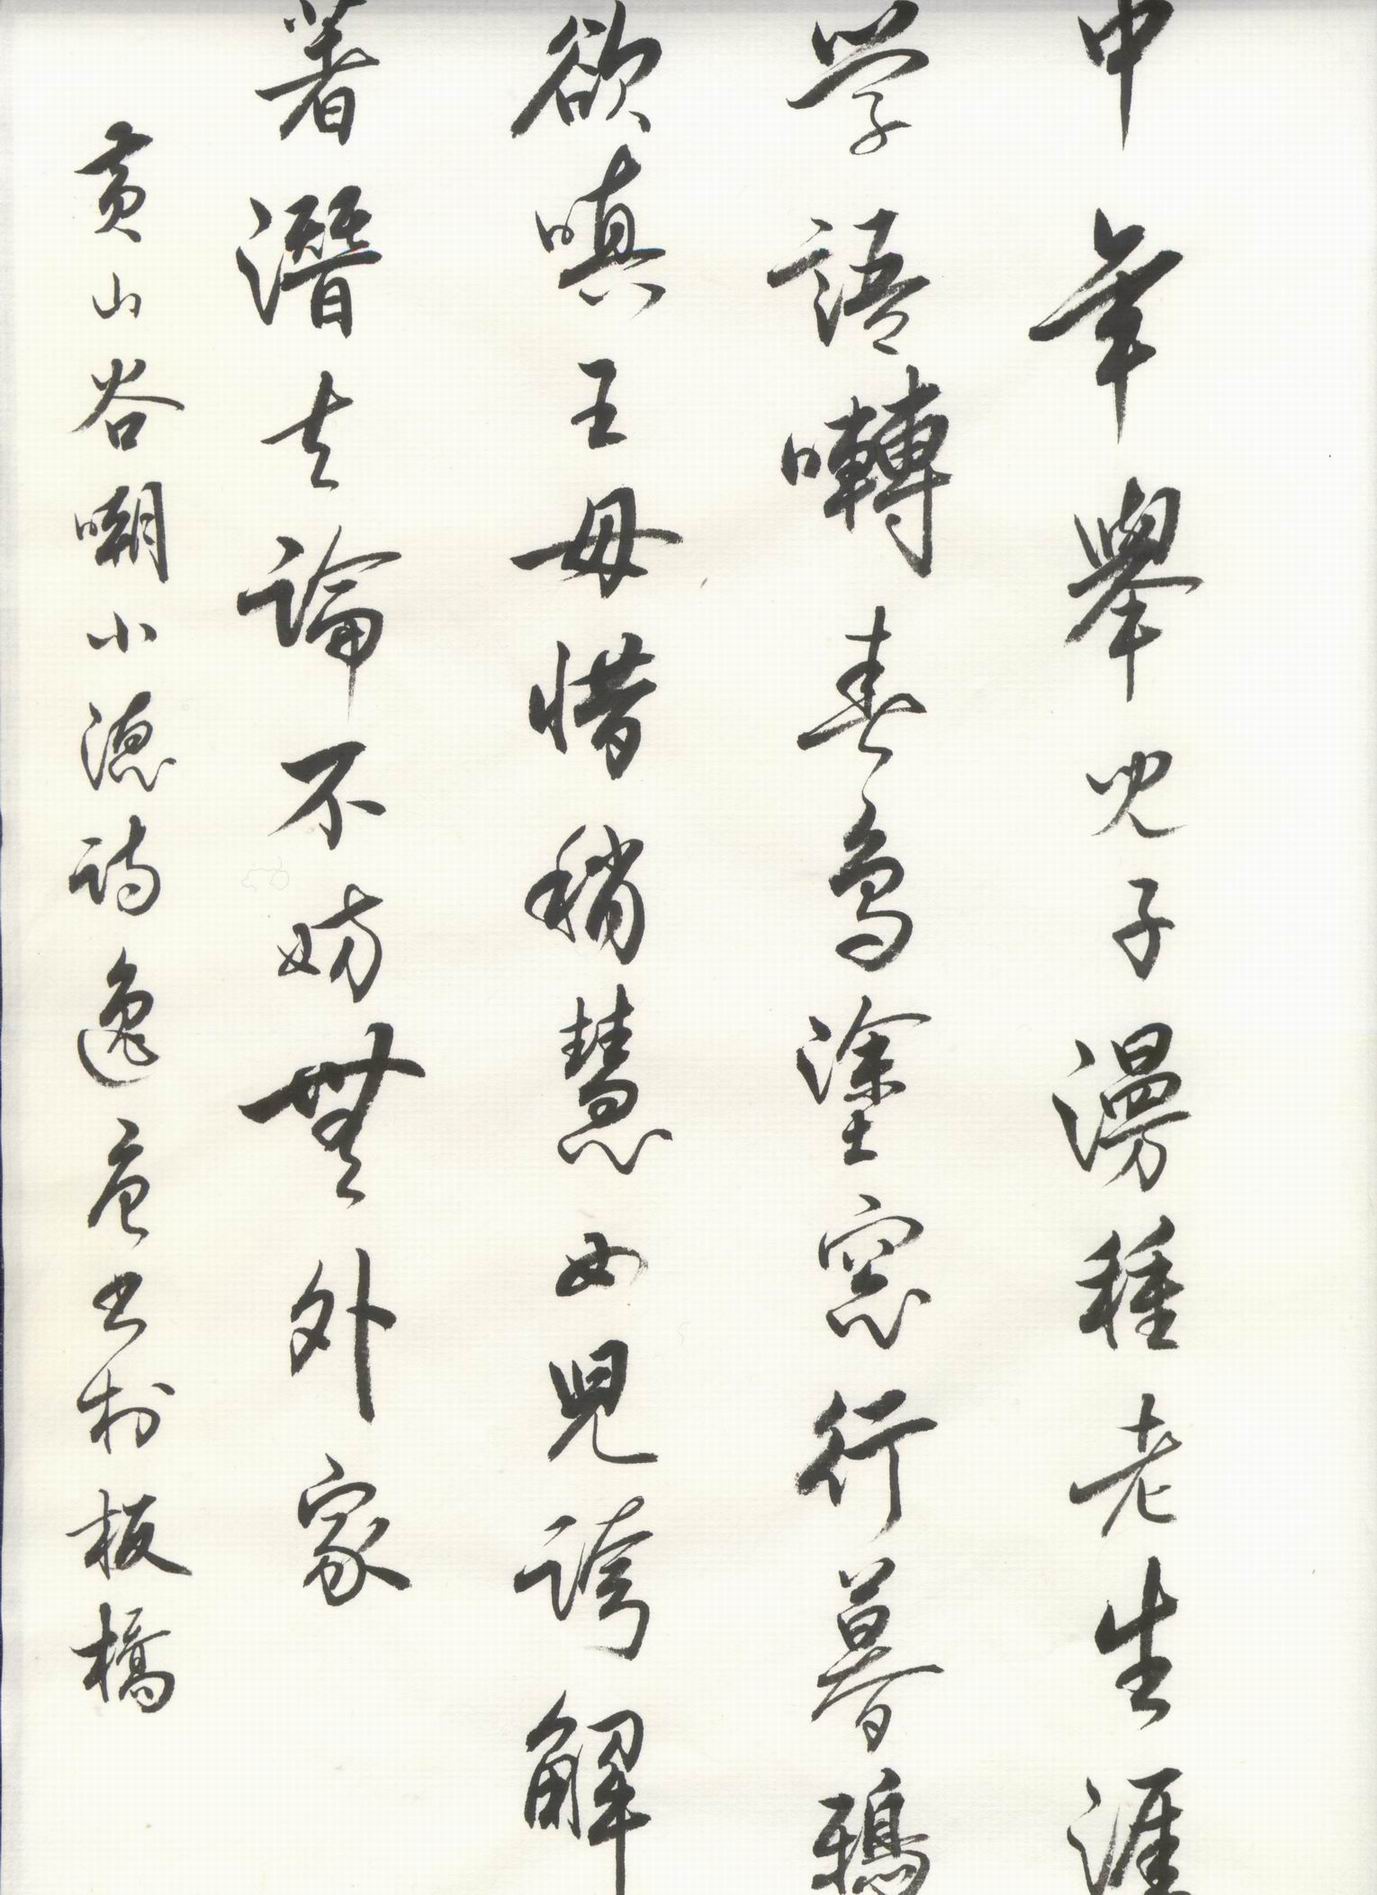 中年舉兒子漫種老生涯
学語囀春鳥塗窓行暮鴉
欲嗔王母惜稍慧女兒誇解
著潜夫論不妨無外家
黄山谷嘲小德詩逸庵书於板橋